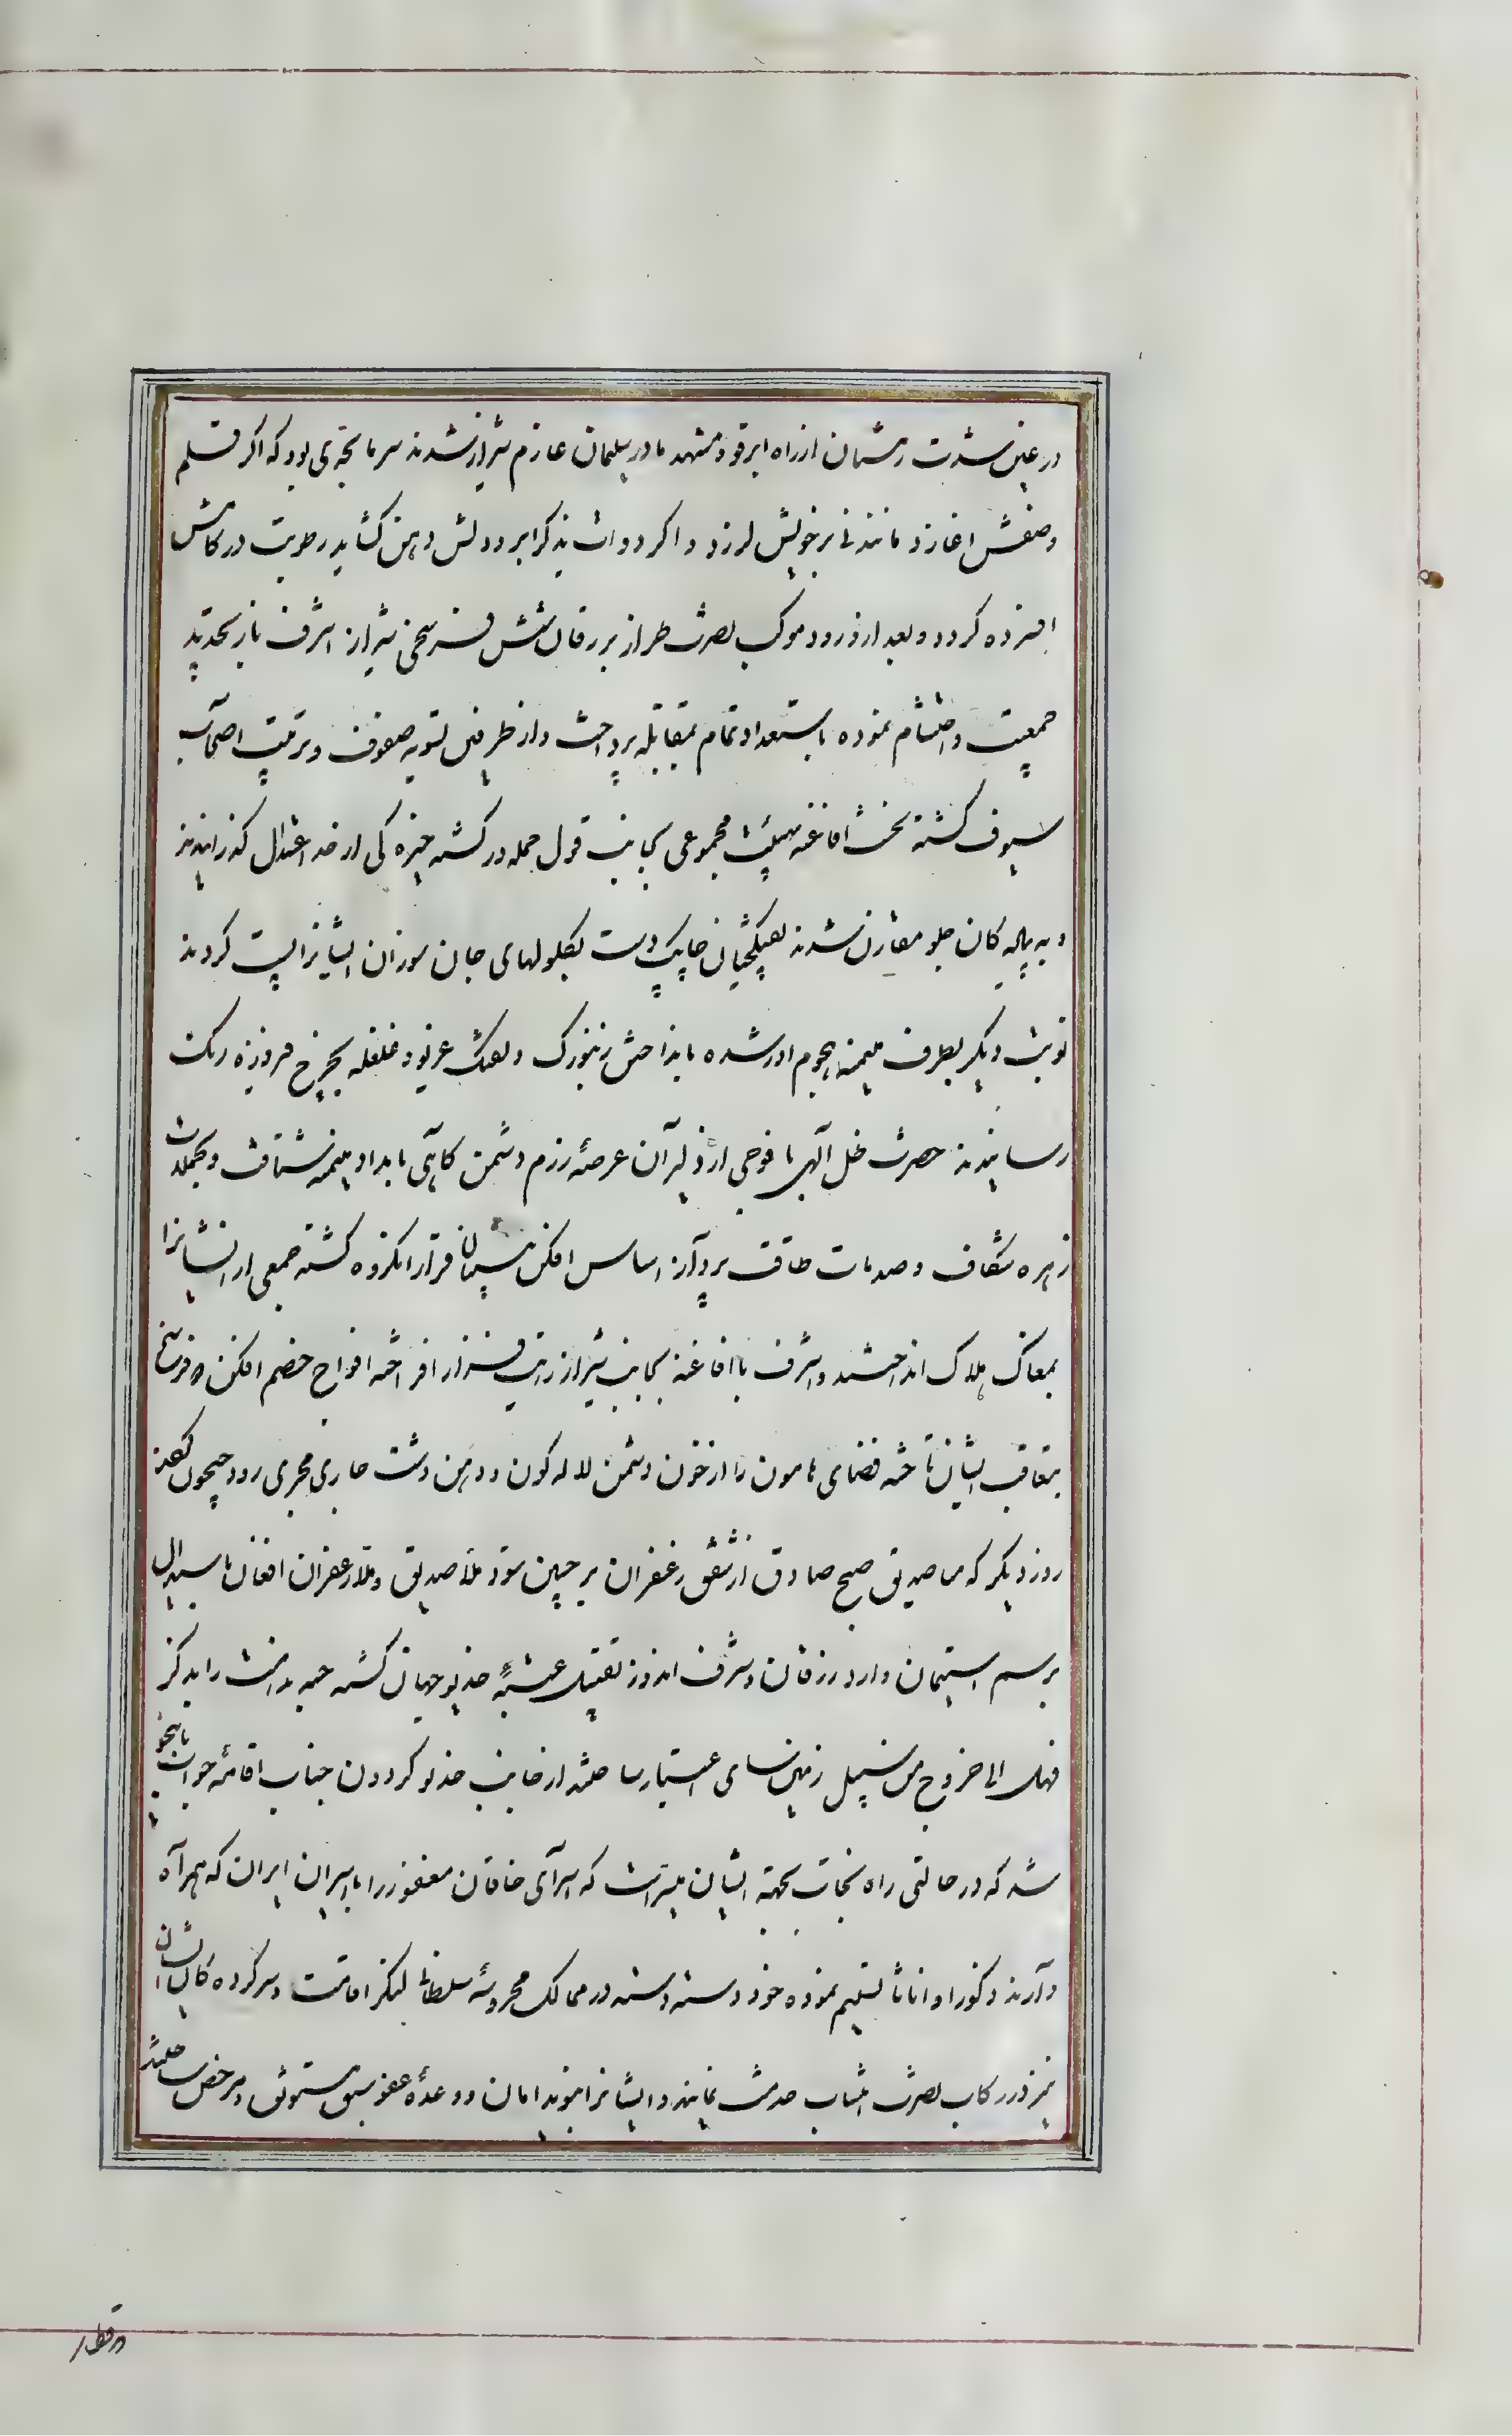 در عین شدت زمستان از راه ابرقو و مشهد مادر سلیمان عازم شیراز شدند سرما بحدی بود که اگر قلم
وصفش آغازد مانند نی بر خویش لرزد و اگر دوات بذکر ابرودتش دهن کشاید رطوبت در کامش
افسرده کردد و بعد از ورود موکب نصرت طراز بزرقان شش فرسخی شیراز اشرف باز تجدید
جمعیت و احتشام نموده باستعداد تمام بمقابله پرداخت و از طرفین تسویه صفوف و ترتیب اصحاب
سیوف کشته نخست افاغنه بهیئت مجموعی بجانب قول حمله ور کشته خیره کی از حد اعتدال کذرانیدند
و به پیاله کان جلو مقارن شدند تفنکچیان چابک دست بکلولهای جان سوزان ایشانرا پست کردند
نوبت دیکر بطرف میمنه هجوم آور شده بانداختن زنبورک و تفنک غریو و غلغله بچرخ فیروزه رنک
رسانیدند حضرت ظل الهی با فوجی از دلیران عرصهٔ رزم دشمن کاهی بامداد میمنه شتافت و بحملات
زهره شکاف و صدمات طاقت پرداز اساس افکن بنیان قرار آنکروه کشته جمعی از ایشانرا
بمغاک هلاک انداختند و اشرف با افاغنه بجانب شیراز رایت فرار افراخته افواج خصم افکن دو فرسخ
بتعاقب ایشان تاخته فضای هامون را از خون دشمن لاله کون و دامن دشت جاری مجرای رود جیحون کردند
روز دیکر که مصادیق صبح صادق از شفق زعفران بر جبین سود ملا صدیق و ملا زعفران افغان با سیدال
برسم استیمان وارد زرقان و شرف اندوز تقبیل عتبهٔ خدیو جهان کشته جبهه ندامت را بذکر
فهل الی خروج من سبیل زمین سای اعتبار ساختند از جانب خدیو کردون جناب اقامهٔ جواب بانحو
شد که در حالتی راه نجات بجهته ایشان میسر است که اسرای خاقان مغفور را با اسیران ایران که همراه
دارند ذکورا و اناثا تسلیم نموده خود دسته دسته در ممالک محروسهٔ سلطانی لنکر اقامت و سرکرده کان ایشان
نیز در رکاب نصرت انتساب خدمت نمایند و ایشانرا بنوید امان و وعدهٔ عفو سبق مستوثق و مرخص ساختند
در قطر